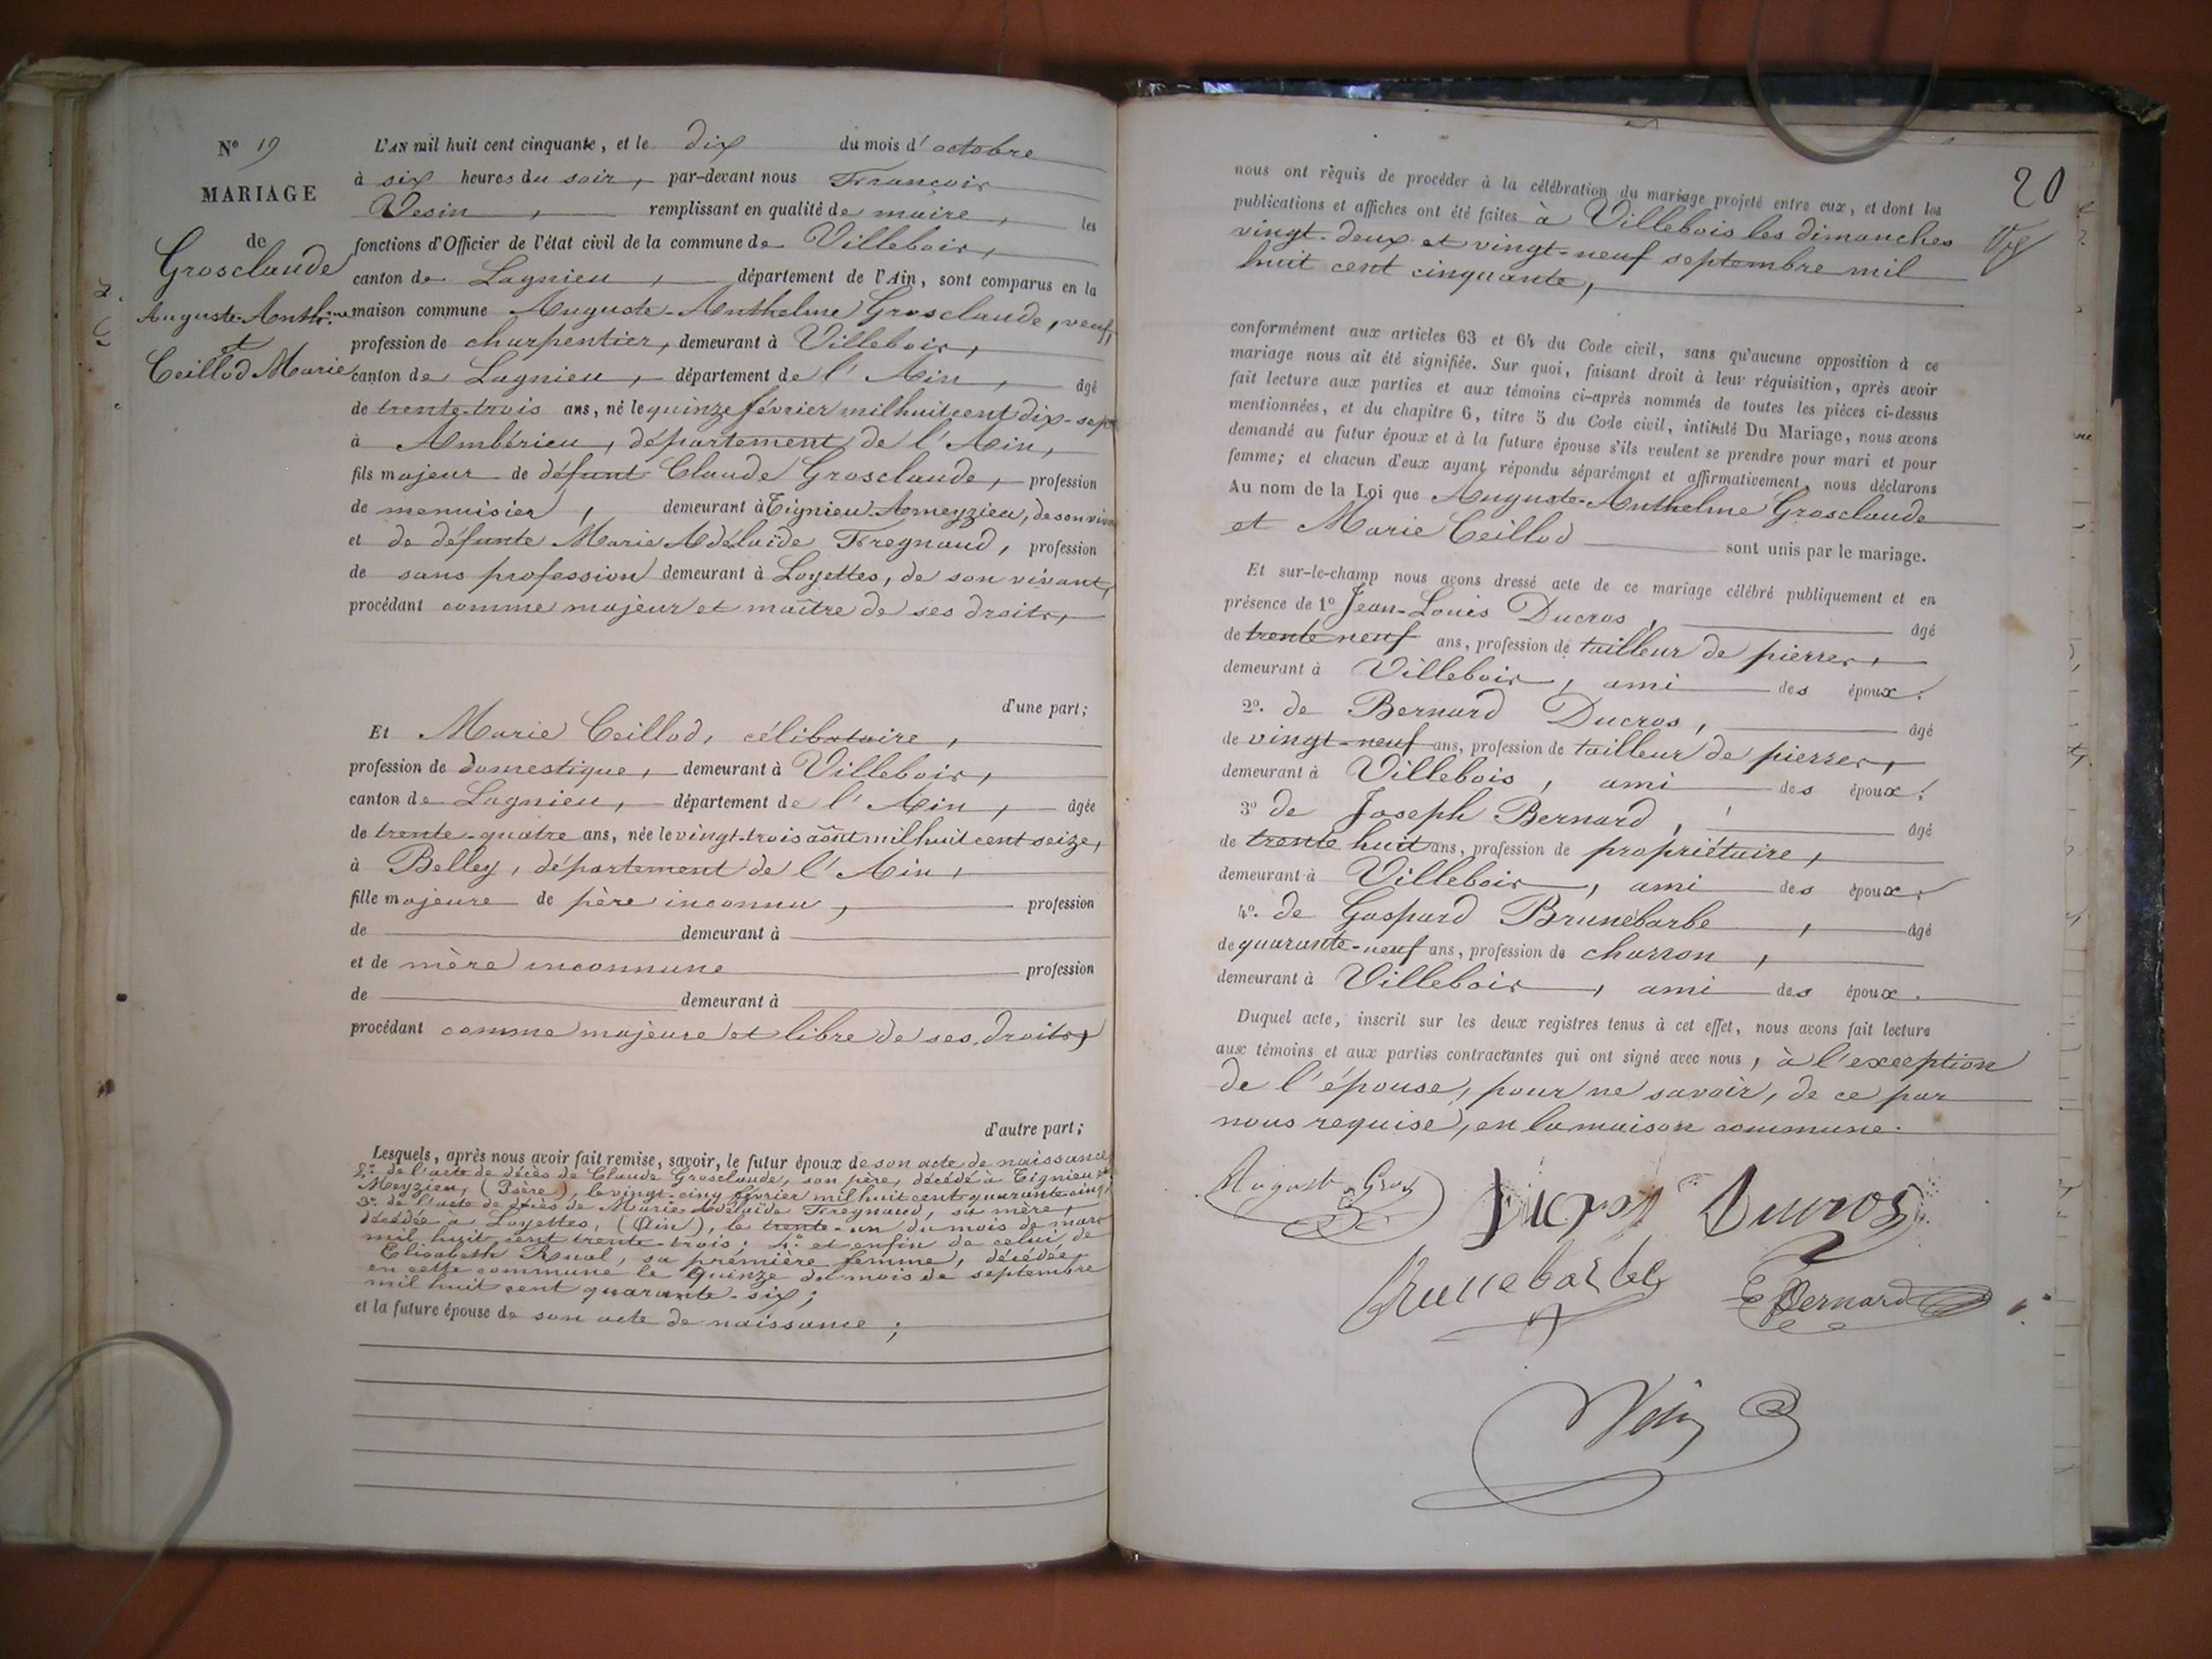 N° 19
MARIAGE
de
Grosclaude
Auguste-Anth.me
et
Ceillod Marie
L'AN mil huit cent cinquante, et le dix du mois d'octobre
à six heures du soir, par-devant nous François
Vesin, remplissant en qualité de maire, les
fonctions d'Officier de l'état civil de la commune de Villebois,
canton de Lagnieu, département de l'Ain, sont comparus en la
maison commune Auguste-Anthelme Grosclaude, veuf,
profession de charpentier, demeurant à Villebois,
canton de Lagnieu, département de l'Ain, âgé
de trente-trois ans, né le quinze février mil huit cent dix-sept
à Ambérieu, département de l'Ain,
fils majeur de défunt Claude Grosclaude, profession
de menuisier, demeurant à Tignieu-Ameyzieu, de son vivant
et de défunte Marie Adélaïde Fregnaud, profession
de sans profession demeurant à Loyettes, de son vivant,
procédant comme majeur et maître de ses droits,
d'une part;
Et Marie Ceillod, célibataire,
profession de domestique, demeurant à Villebois,
canton de Lagnieu, département de l'Ain, âgée
de trente-quatre ans, née le vingt-trois août mil huit cent seize,
à Belley, département de l'Ain,
fille majeure de père inconnu, profession
de demeurant à
et de mère inconnue profession
de demeurant à
procédant comme majeure et libre de ses droits,
d'autre part;
Lesquels, après nous avoir fait remise, savoir, le futur époux de son acte de naissance,
2° de l'acte de décès de Claude Grosclaude, son père, décédé à Tignieu
Meyzieu, (Isère), le vingt-cinq février mil huit cent quarante-cinq,
3° de l'acte de décès de Marie Adélaïde Fregnaud, sa mère,
décédée à Loyettes, (Ain), le trente-un du mois de mars
mil huit cent trente-trois; 4° et enfin de celui de
Elisabeth Rual, sa première femme, décédée
en cette commune le quinze du mois de septembre
mil huit cent quarante-six;
et la future épouse de son acte de naissance;
20
nous ont requis de procéder à la célébration du mariage projeté entre eux, et dont les
publications et affiches ont été faites à Villebois les dimanches
vingt-deux et vingt-neuf septembre mil
huit cent cinquante,
conformément aux articles 63 et 64 du Code civil, sans qu'aucune opposition à ce
mariage nous ait été signifiée. Sur quoi, faisant droit à leur réquisition, après avoir
fait lecture aux parties et aux témoins ci-après nommés de toutes les pièces ci-dessus
mentionnées, et du chapitre 6, titre 5 du Code civil, intitulé Du Mariage, nous avons
demandé au futur époux et à la future épouse s'ils veulent se prendre pour mari et pour
femme; et chacun d'eux ayant répondu séparément et affirmativement, nous déclarons
Au nom de la Loi que Auguste-Anthelme Grosclaude
et Marie Ceillod sont unis par le mariage.
Et sur-le-champ nous avons dressé acte de ce mariage célébré publiquement et en
présence de 1° Jean-Louis Ducros, âgé
de trente neuf ans, profession de tailleur de pierres,
demeurant à Villebois, ami des époux.
2°. de Bernard Ducros, âgé
de vingt-neuf ans, profession de tailleur de pierres,
demeurant à Villebois, ami des époux;
3° de Joseph Bernard, âgé
de trente huit ans, profession de propriétaire,
demeurant à Villebois, ami des époux,
4°. de Gaspard Brunebarbe, âgé
de quarante-neuf ans, profession de charron,
demeurant à Villebois, ami des époux.
Duquel acte, inscrit sur les deux registres tenus à cet effet, nous avons fait lecture
aux témoins et aux parties contractantes qui ont signé avec nous, à l'exception
de l'épouse, pour ne savoir, de ce par
nous requise, en la maison commune.
August Gros
Ducros
Brunebarbe
Bernard
Vesin